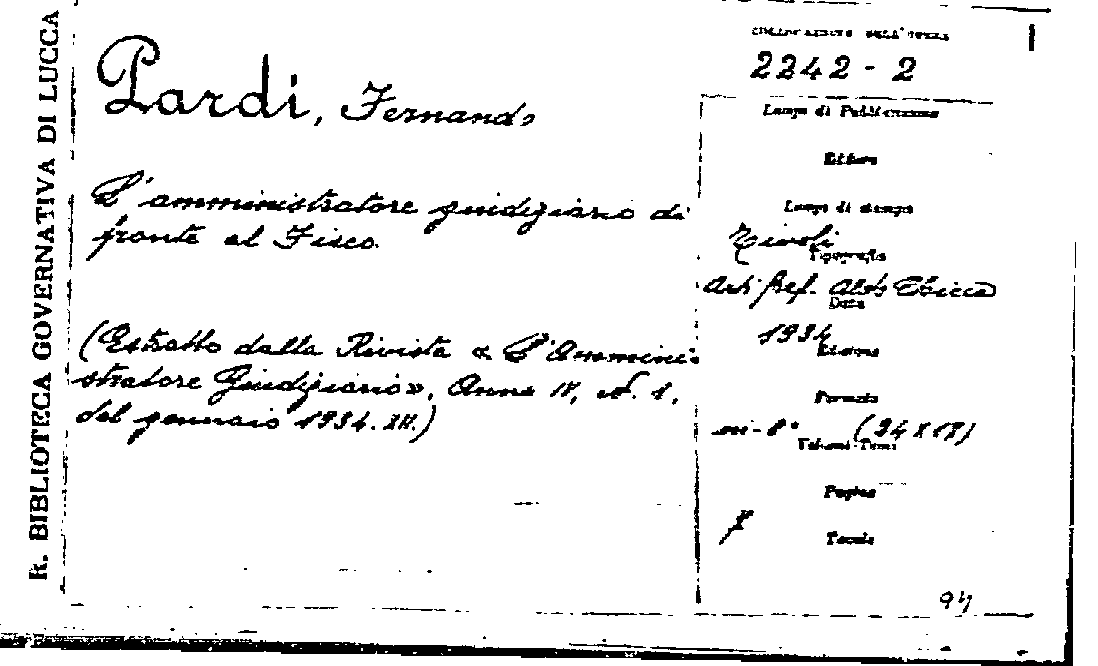 R. BIBLIOTECA GOVERNATIVA DI LUCCA
Pardi, Fernando
L'amministratore giudiziario di
fronte al Fisco.
(Estratto dalla Rivista « L'Ammini-
stratore Giudiziario», Anno IV, N. 1,
del gennaio 1934.XII.)
COLLOCAZIONE DELL'OPERA
2242 - 2
Luogo di Pubblicazione
Editore
Luogo di stampa
Tivoli
Tipografia
Arti Graf. Aldo Chicca
Data
1934
Edizione
Formato
in-8° (24X17)
Volumi-Tomi
Pagine
7
Tavole